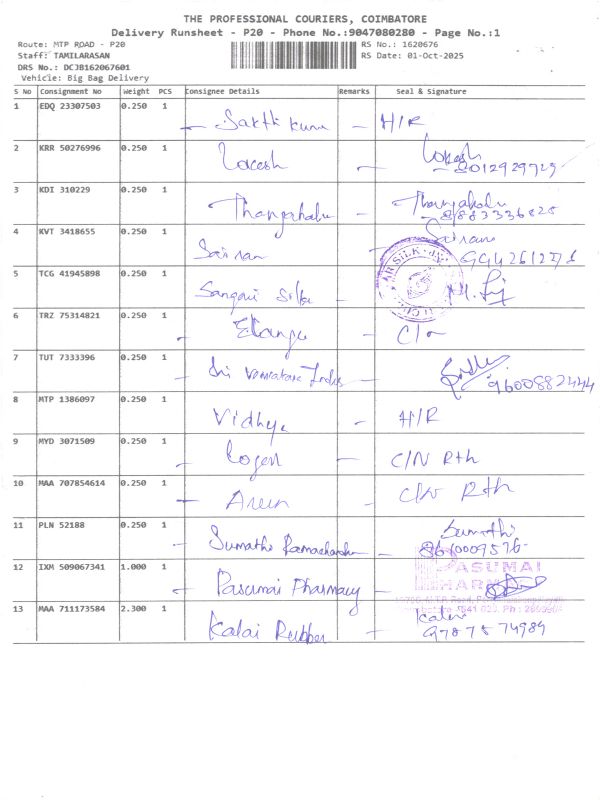 THE PROFESSIONAL COURIERS, COIMBATORE
Delivery Runsheet - P20 - Phone No.:9047080280 - Page No.:1
Route: MTP ROAD - P20
RS No.: 1620676
Staff: TAMILARASAN
RS Date: 01-Oct-2025
DRS No.: DCJB162067601
Vehicle: Big Bag Delivery
S No Consignment No Weight PCS Consignee Details Remarks Seal & Signature
1 EDQ 23307503 0.250 1
Sakthi kumar - H/R
2 KRR 50276996 0.250 1
Lokesh - Lokesh
8012929723
3 KDI 310229 0.250 1
- Thangabalu
8883336825
4 KVT 3418655 0.250 1
Sairam Sairam
9944261276
5 TCG 41945898 0.250 1
Sangavi Silks
6 TRZ 75314821 0.250 1
Elango -
7 TUT 7333396 0.250 1
Sri
9600882444
8 MTP 1386097 0.250 1
Vidhya - H/R
9 MYD 3071509 0.250 1
Logen - C/N Rth
10 MAA 707854614 0.250 1
Arun C/N Rth
11 PLN 52188 0.250 1
Sumathi Ramachandran - Sumathi
12 IXM 509067341 1.000 1
Pasumai Pharmacy -
PASUMAI
PHARMACY
13 MAA 711173584 2.300 1
Kalai Rubber - Kalai
9787574989